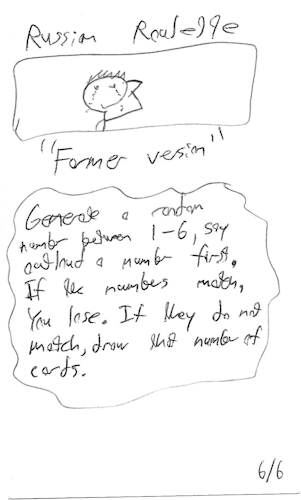 Russian Roulette
"Former version"
Generate a random
number between 1-6, say
outloud a number first.
If the numbers match,
You lose. If they do not
match, draw that number of
cards.
6/6